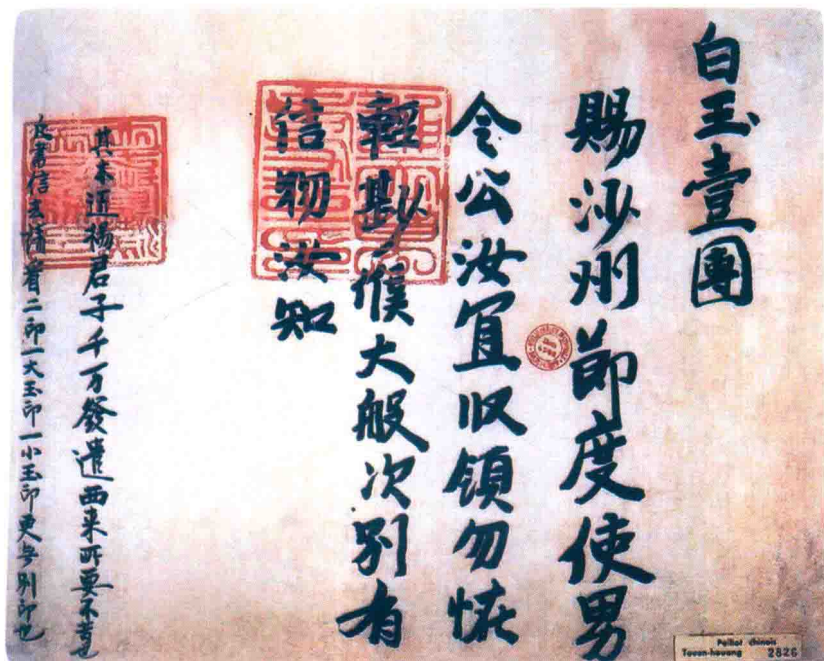 白玉壹團
賜沙州節度使男
令公汝宜收領勿怪
輕尠候大般次別有
信物汝知
其木匠楊君子千万發遣西來所要不昔也
凡書信去請看二印一大玉印一小玉印更无別印也
Pelliot chinois
Touen-houang 2826